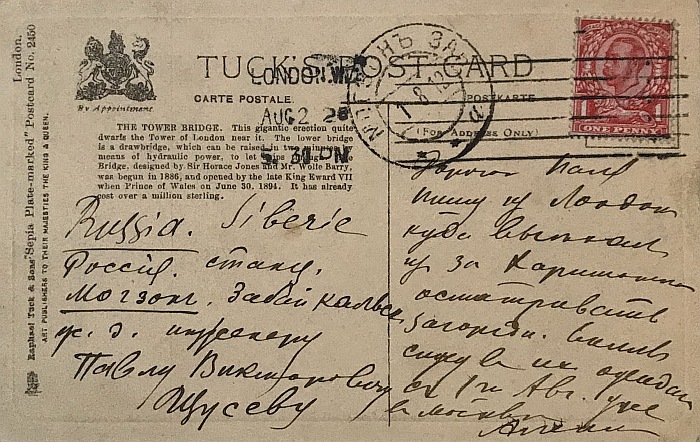 London.
Raphael Tuck & Sons' "Sepia Plate-marked" Postcard No. 2450
ART PUBLISHERS TO THEIR MAJESTIES THE KING & QUEEN.
By Appointment.
TUCK'S POST CARD
CARTE POSTALE.
POSTKARTE.
(FOR ADDRESS ONLY)
LONDON.W.
AUG 2
МОГЗОНЪ ЗАБ
1 8 12
ONE PENNY
THE TOWER BRIDGE. This gigantic erection quite
dwarfs the Tower of London near it. The lower bridge
is a drawbridge, which can be raised in two minutes by
means of hydraulic power, to let ships through. The
Bridge, designed by Sir Horace Jones and Mr. Wolfe Barry,
was begun in 1886, and opened by the late King Edward VII
when Prince of Wales on June 30. 1894. It has already
cost over a million sterling.
Russia. Siberie
Россія. станц.
Могзонъ. Забайкальск
ж. д. инженеру
Павлу Викторовичу
Щусеву
Дорогой Павел
пишу из Лондона
куда выехал
из за Харитоненко
осматривать
загородн.
1го Авг. уже
в Москве